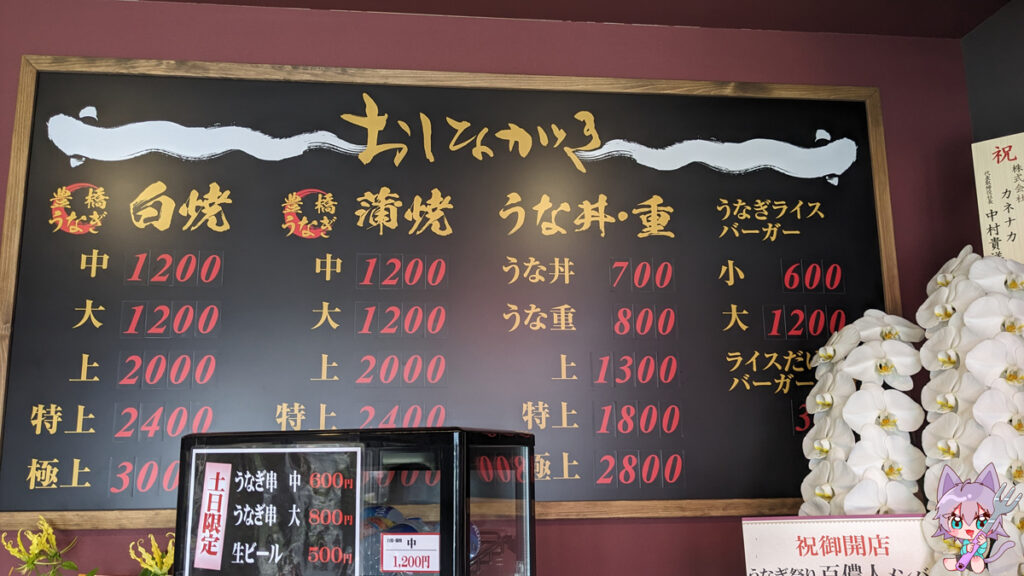 おしながき
豊橋うなぎ 白焼
中 1200
大 1200
上 2000
特上 2400
極上 300
豊橋うなぎ 蒲焼
中 1200
大 1200
上 2000
特上 2400
うな丼・重
うな丼 700
うな重 800
上 1300
特上 1800
極上 2800
うなぎライス
バーガー
小 600
大 1200
ライスだけ
バーガー
3
土日限定
うなぎ串 中 600円
うなぎ串 大 800円
生ビール 500円
中
1,200円
祝
株式会社
カネナカ
中村貴
祝御開店
うなぎ祭り 百儂人 メンバ